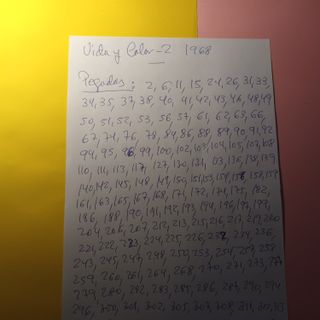 Vida y Color-2 1968
Pegadas: 2, 6, 11, 15, 24, 26, 31, 33,
34, 35, 37, 38, 40, 41, 42, 43, 46, 48, 49
50, 51, 52, 53, 56, 57, 61, 62, 65, 66,
67, 74, 76, 78, 84, 86, 88, 89, 90, 91, 92
94, 95, 96, 99, 100, 102, 103, 104, 105, 107, 108
110, 111, 113, 117, 127, 130, 131, 133, 136, 138, 139
140, 142, 145, 148, 149, 150, 151, 153, 154, 156, 158, 159
161, 163, 165, 167, 168, 171, 172, 174, 175, 182,
186, 188, 190, 191, 192, 193, 194, 196, 197, 199
204, 206, 207, 212, 213, 215, 216, 217, 219, 220
221, 222, 223, 224, 225, 226, 232, 234, 236,
243, 245, 247, 248, 250, 253, 254, 257, 258
259, 260, 261, 264, 268, 270, 271, 273, 277
279, 280, 282, 283, 285, 286, 287, 290, 294
296, 300, 301, 302, 305, 307, 308, 311,